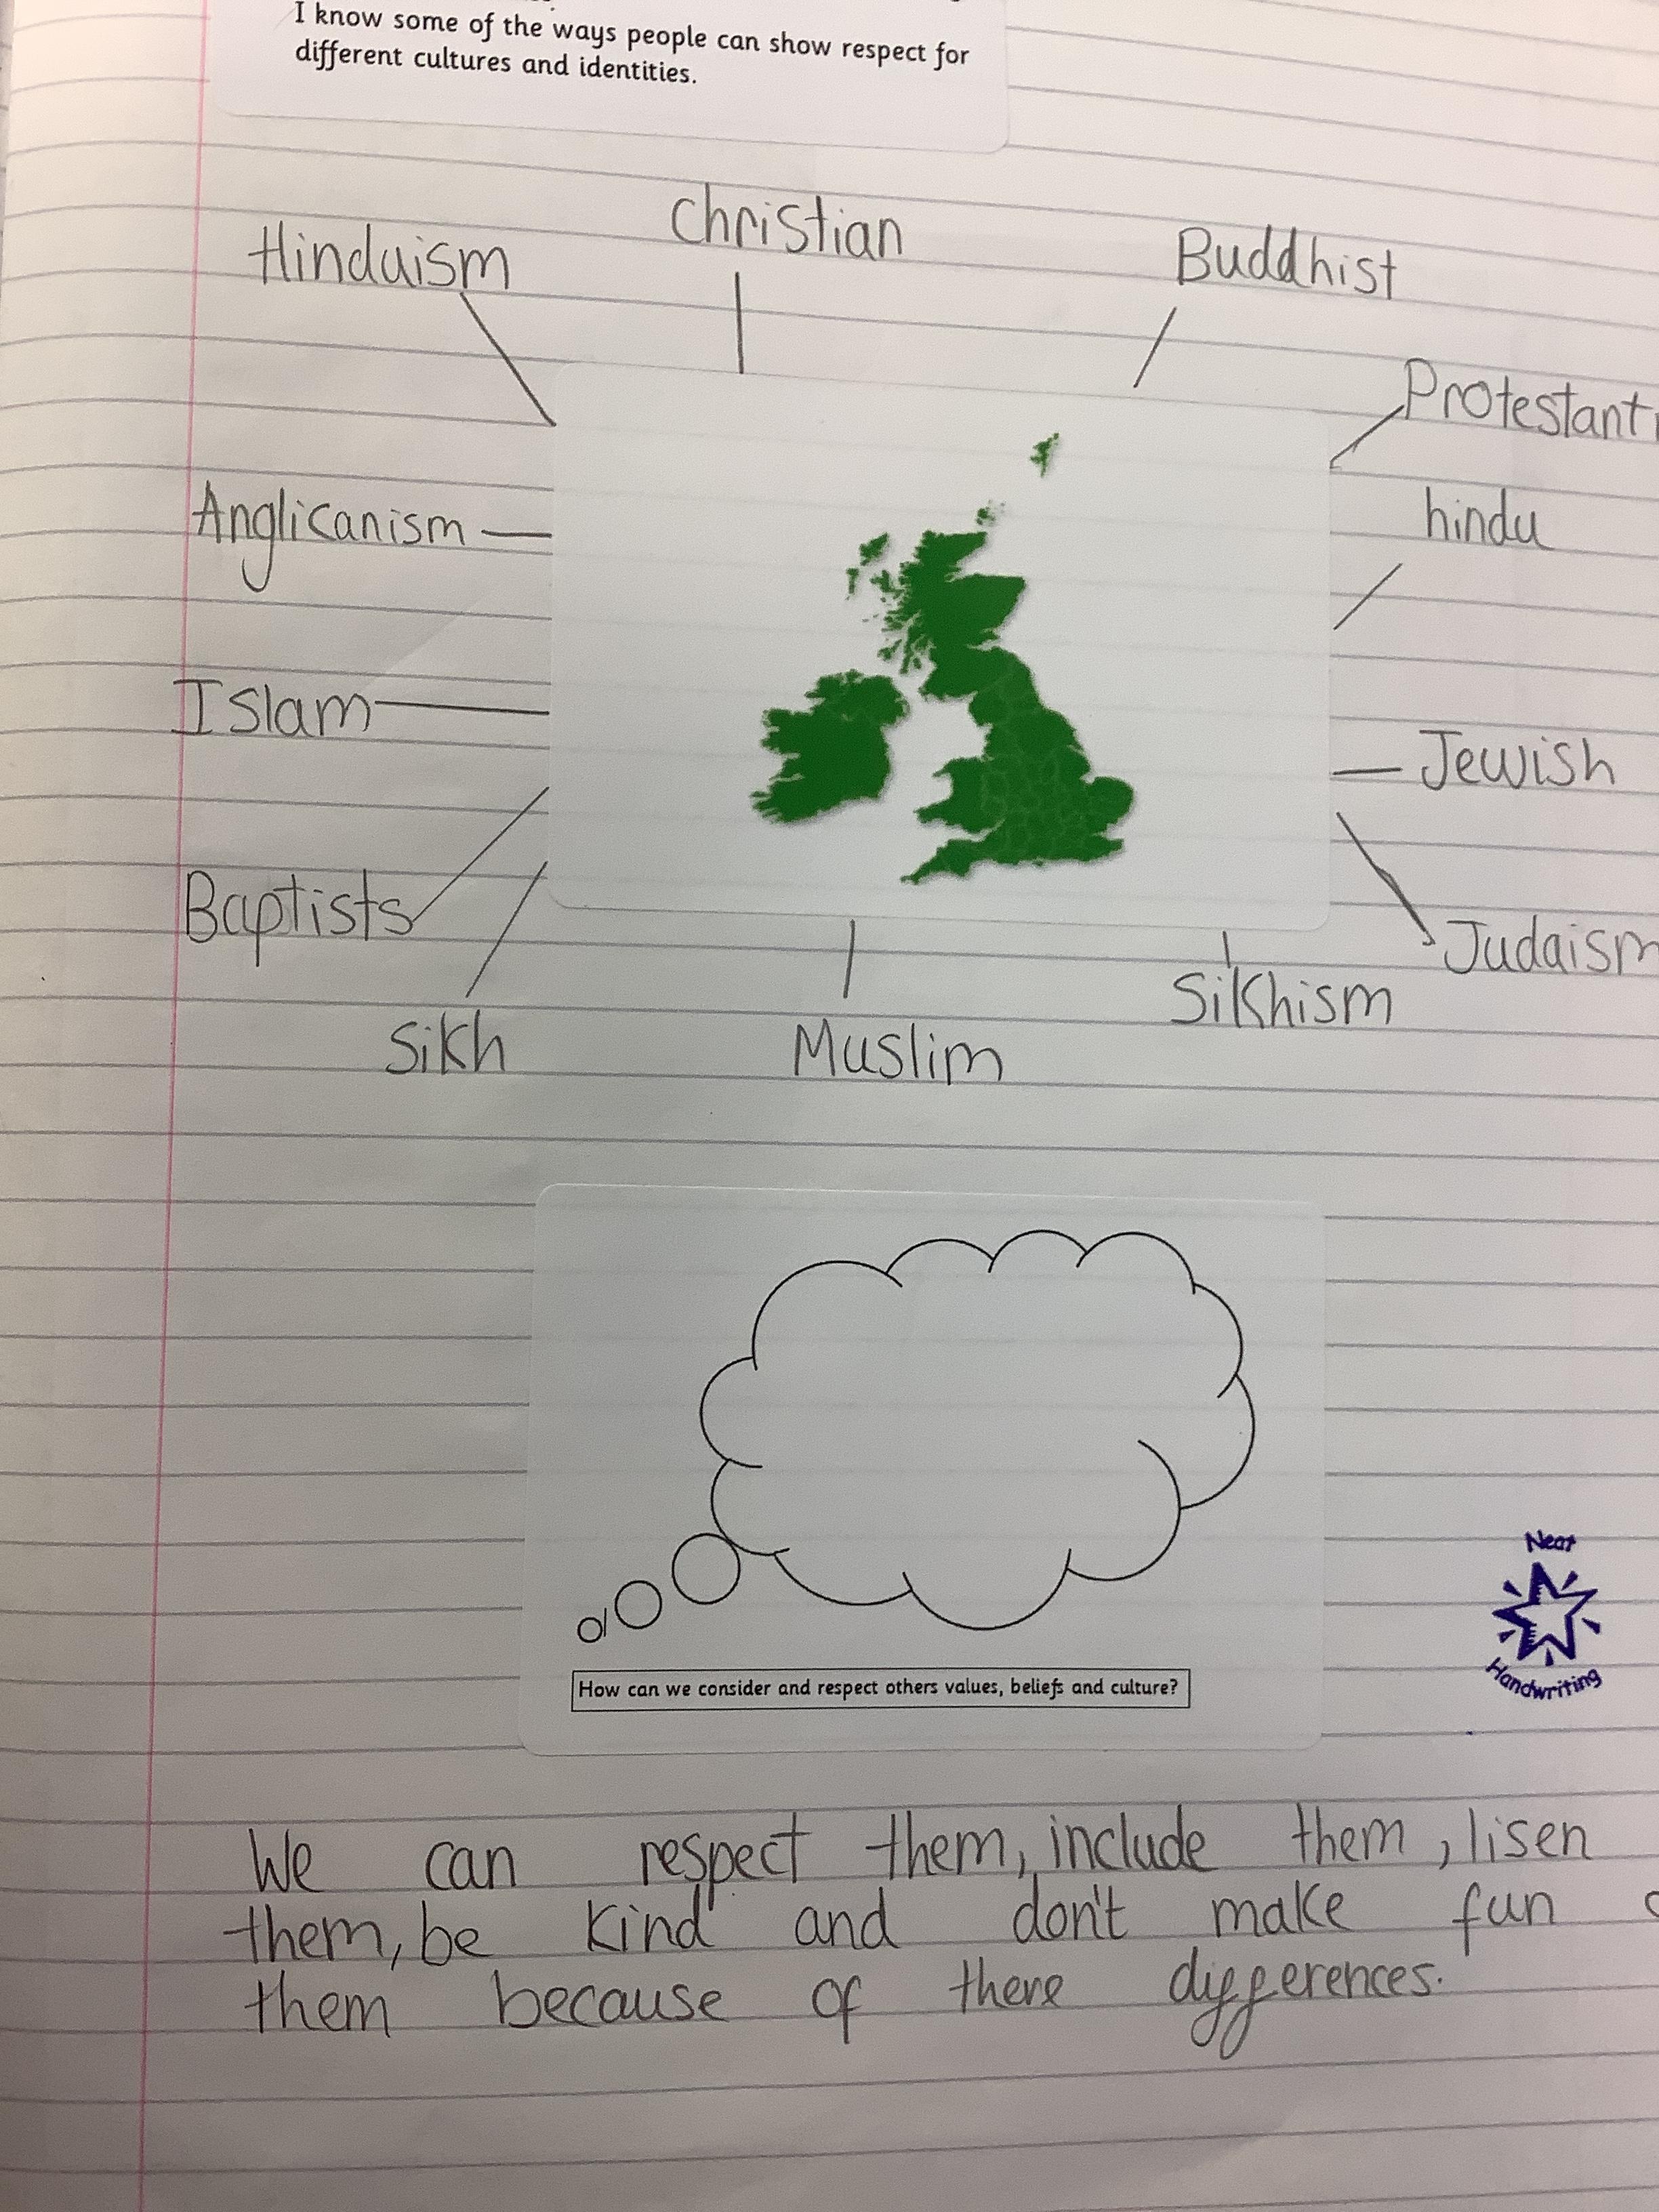 I know some of the ways people can show respect for
different cultures and identities.
Christian
Hinduism
Buddhist
Protestant
Anglicanism
hindu
Islam
Jewish
Baptists
Judaism
Sikhism
Sikh
Muslim
How can we consider and respect others values, beliefs and culture?
Neat
Handwriting
We can respect them, include them, lisen
them, be kind and don't make fun
them because of there differences.